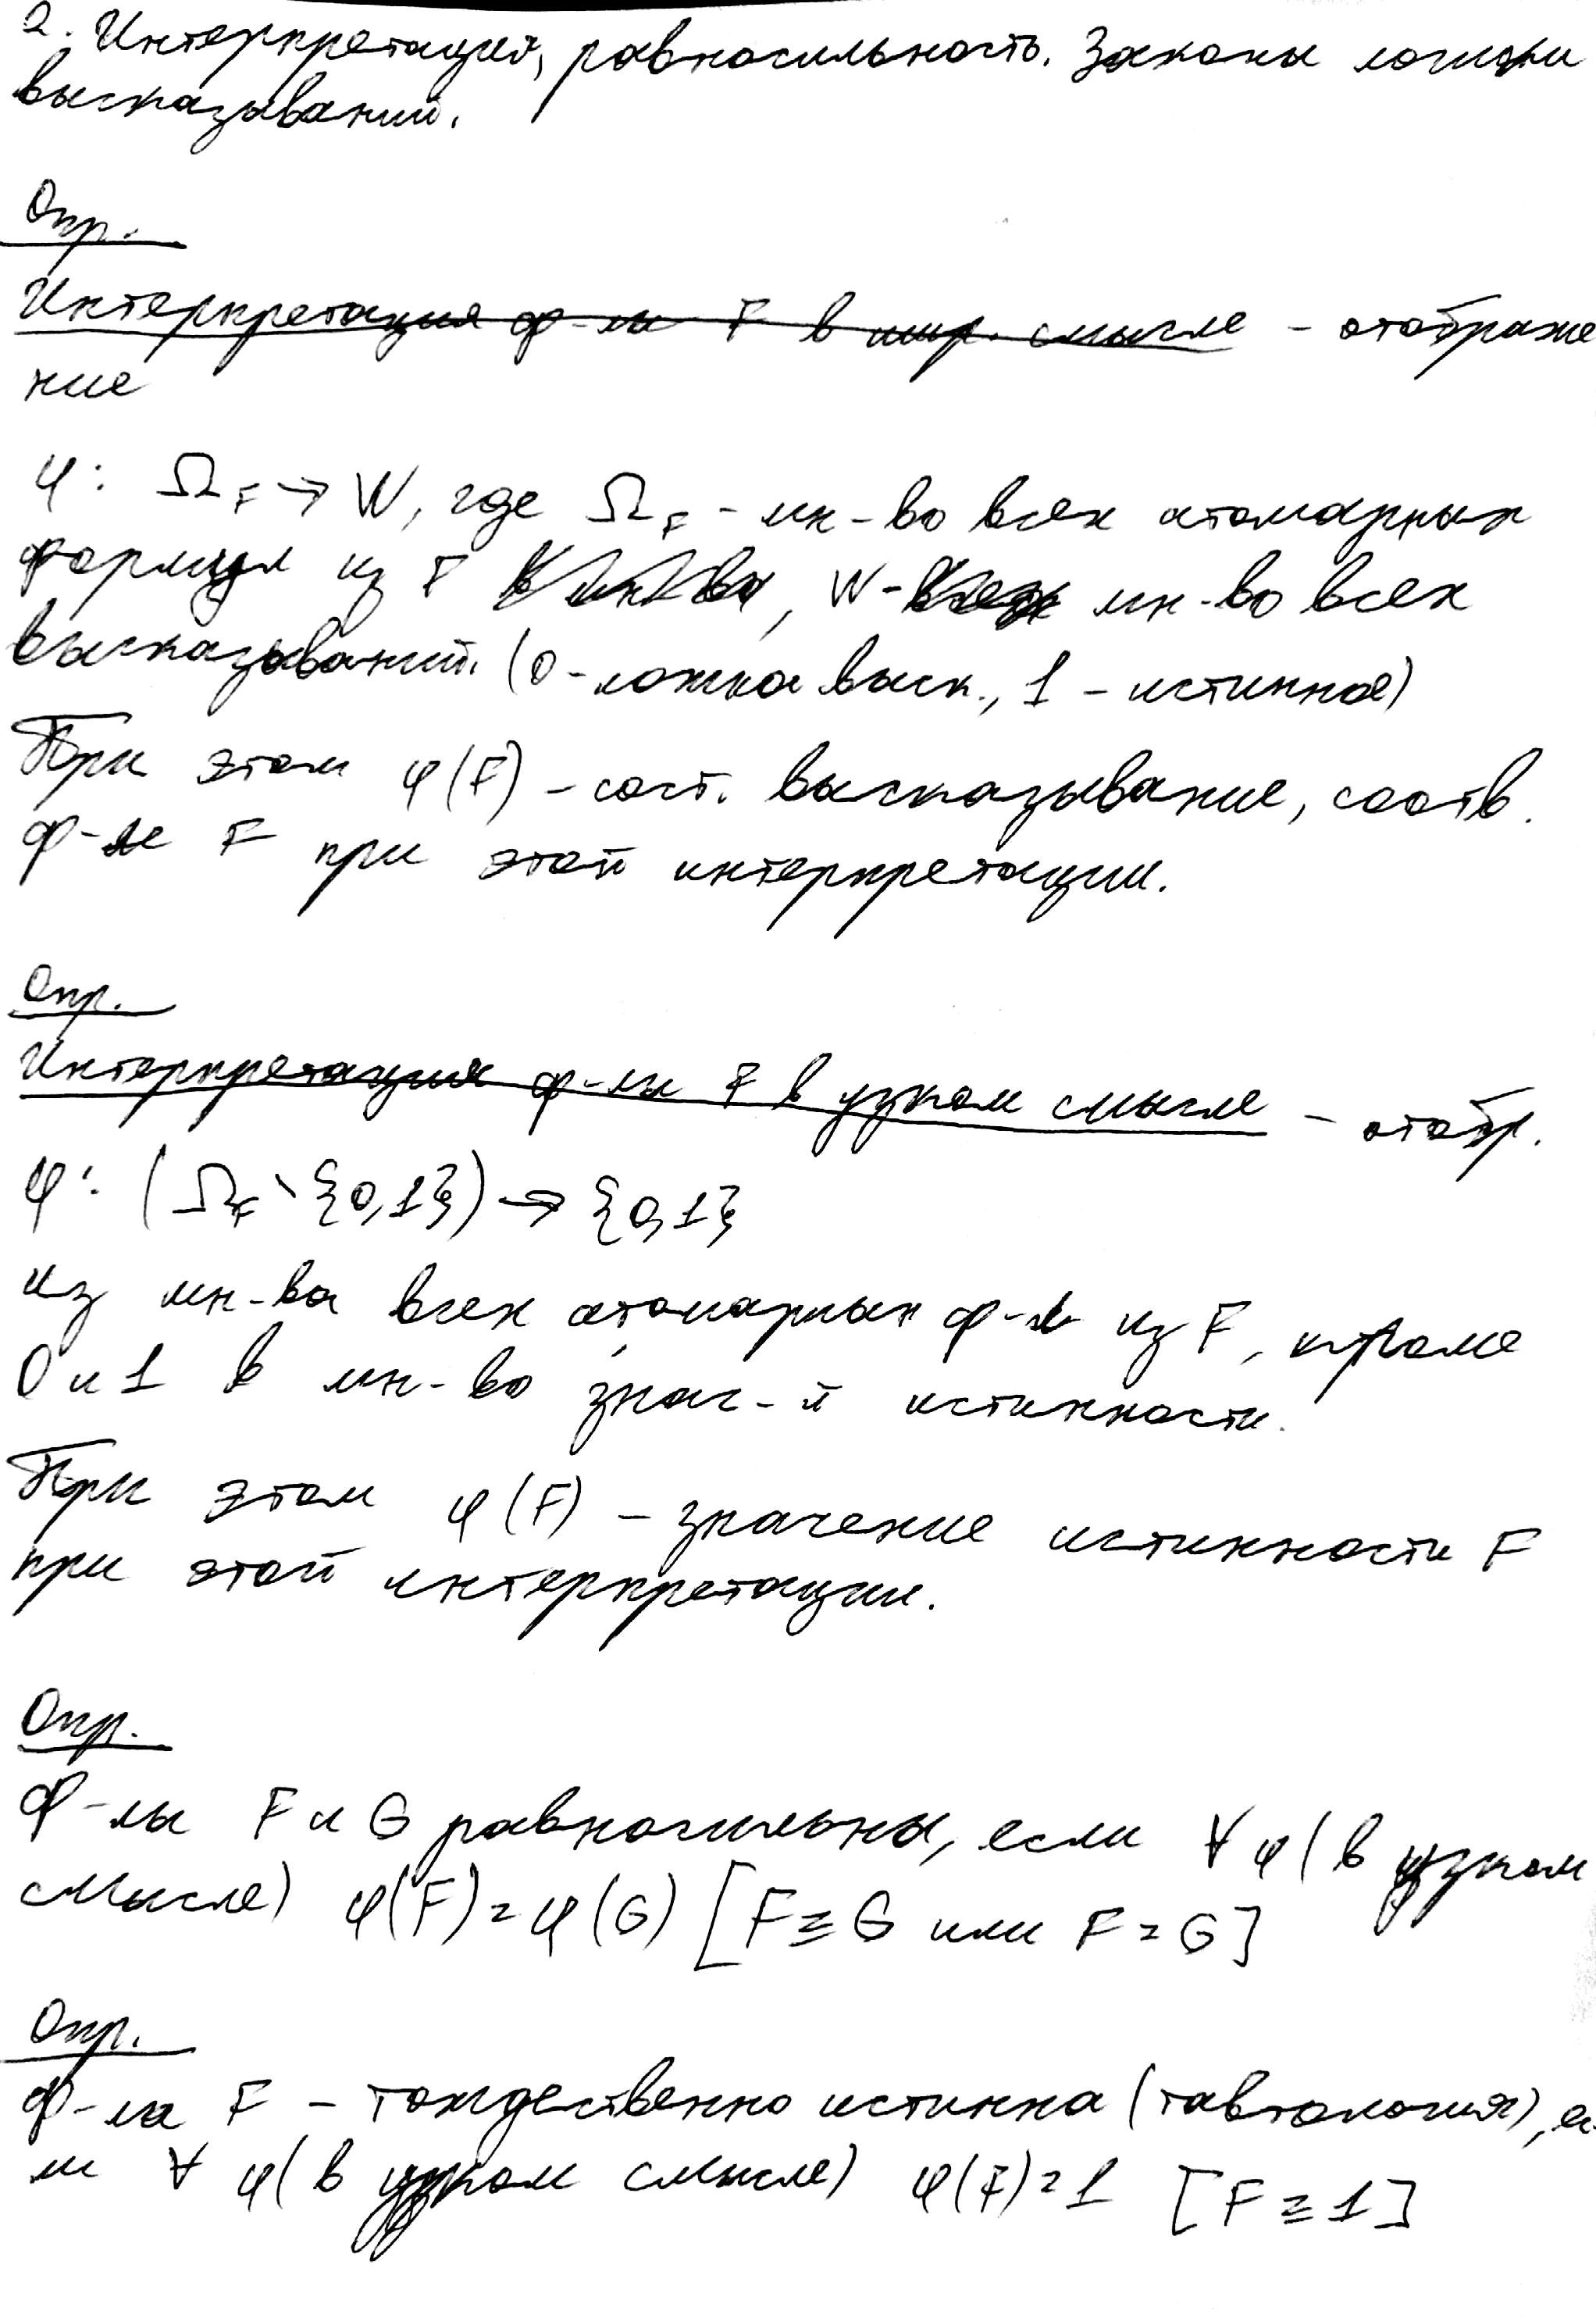 2. Интерпретация, равносильность. Законы логики
высказываний.
Опр.
Интерпретация ф-лы F в шир. смысле - отображе
ние
φ: Ω_F → W, где Ω_F - мн-во всех атомарных
формул из F, W - мн-во всех
высказываний. (0 - ложна выск., 1 - истинное)
При этом φ(F) - сост. высказывание, соотв.
ф-ле F при этой интерпретации.
Опр.
Интерпретация ф-лы F в узком смысле - отобр.
φ: (Ω_F \ {0,1}) → {0,1}
из мн-ва всех атомарных ф-л из F, кроме
0 и 1 в мн-во знач-й истинности.
При этом φ(F) - значение истинности F
при этой интерпретации.
Опр.
Ф-лы F и G равносильны, если ∀ φ (в узком
смысле) φ(F) = φ(G) [F ≡ G или F = G]
Опр.
Ф-ла F - тождественно истинна (тавтология), ес
ли ∀ φ (в узком смысле) φ(F) = 1 [F ≡ 1]